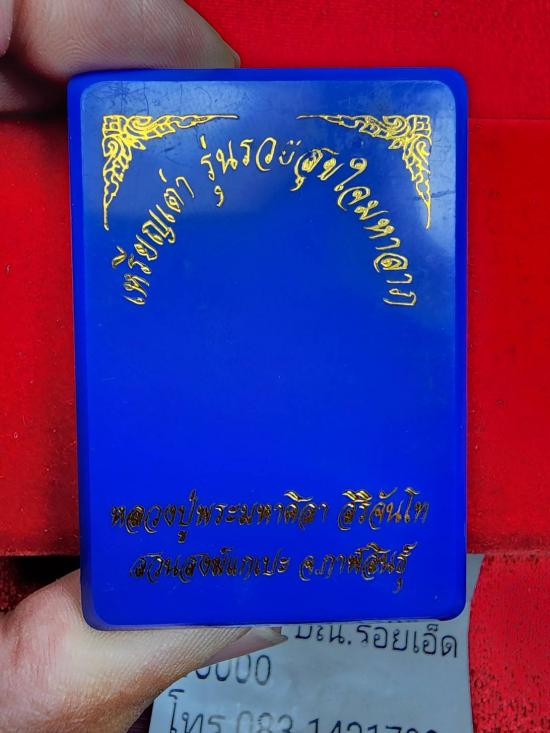 เหรียญเต่า รุ่นรวยสุขใจมหาลาภ
หลวงปู่พระมหาศิลา สิริจันโท
สวนสงฆ์แกเปะ จ.กาฬสินธุ์
ปณ.ร้อยเอ็ด
โทร 083